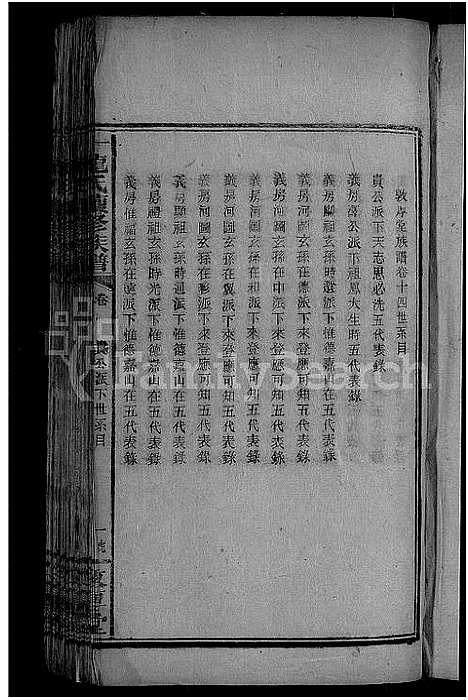 敦厚堂族譜卷十四世系目
貴公派下天志思必洗五代表錄
義房溍公派下祖鳳大生時五代表錄
義房顯祖玄孫時選派下來登應可知五代表錄
義房河圖玄孫在德派下來登應可知五代表錄
義房河圖玄孫在和派下來登應可知五代表錄
義房河圖玄孫在翼派下來登應可知五代表錄
義房河圖玄孫在彬派下來登應可知五代表錄
義房顯祖玄孫時迥派下惟德嘉山在五代表錄
義房禮祖玄孫時光派下惟德嘉山在五代表錄
義房惟福玄孫在漢派下惟德嘉山在五代表錄
氏續修族譜
卷
貴公派下世系目
一
FamilySearch